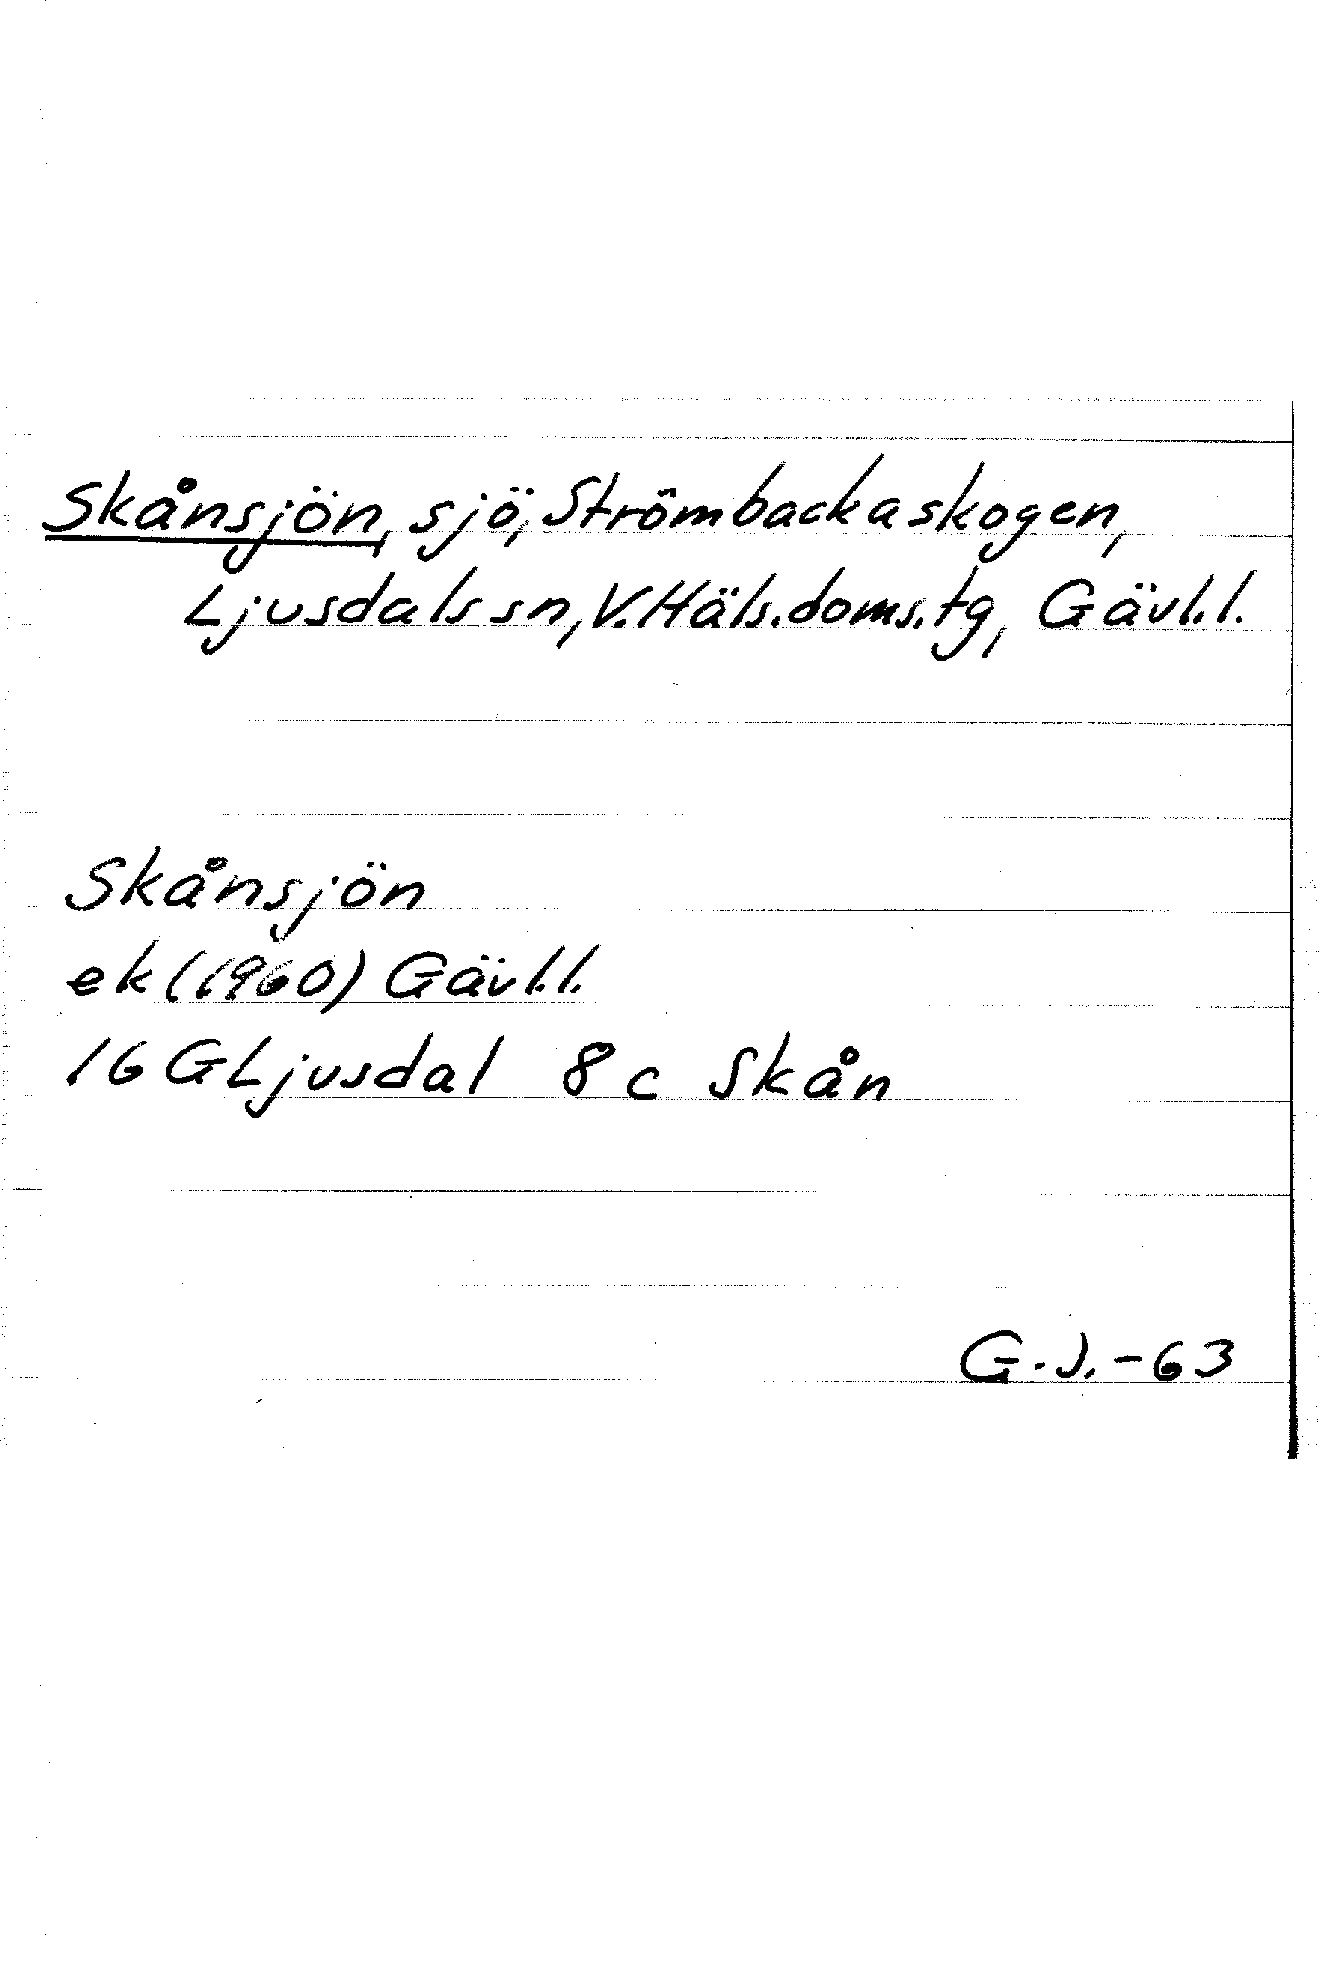 Skånsjön, sjö, Strömbackaskogen,
Ljusdals sn, V. Häls. doms. tg, Gävl. l.
Skånsjön
ek (1960) Gävl. l.
16 G Ljusdal 8 c Skån
G. J. -63